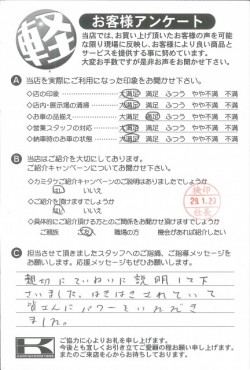 軽
お客様アンケート
当店では、お買い上げ頂いたお客様の声を可能
な限り現場に反映し、お客様により良い商品と
サービスを提供する事に努めています。
大変お手数ですが是非お声をお聞かせ下さい。
A 当店を実際にご利用になった印象をお聞かせ下さい。
◇店の印象 大満足 満足 ふつう やや不満 不満
◇店内・展示場の清掃 大満足 満足 ふつう やや不満 不満
◇お車の品揃え 大満足 満足 ふつう やや不満 不満
◇営業スタッフの対応 大満足 満足 ふつう やや不満 不満
◇納車時のお車の状態 大満足 満足 ふつう やや不満 不満
B 当店はご紹介を大切にしております。
ご紹介キャンペーンについてお聞かせ下さい。
◇カミタケご紹介キャンペーンのご説明はありましたでしょうか
はい いいえ
◇ご紹介を頂けますでしょうか
はい いいえ
検印
29.1.23
社長
◇具体的にご紹介頂ける方とのご関係をお聞かせ頂けますでしょうか
ご親族 職場の方 機会があれば紹介したい
C 担当させて頂きましたスタッフへのご指摘、ご指導メッセージを
お願いします。応援メッセージもぜひお願いします。
親切にていねいに説明して下
さいました。はきはきされていて
皆さんにパワーをいただき
ました。
K
ご協力に心よりお礼を申し上げます。
今後とも宜しくお引き立てご愛顧の程お願い申し上げます。
またのご来店を心からお待ちしております。